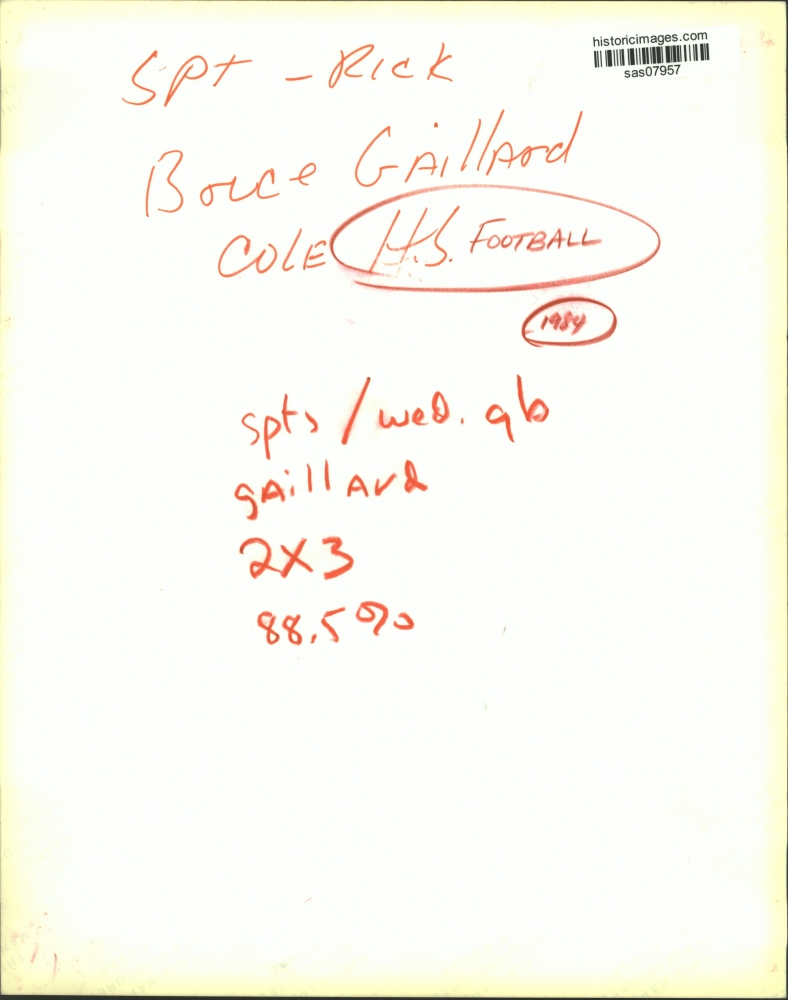 historicimages.com
sas07957
SPT - Rick
Bruce GAillArd
COLE H.S. FOOTBALL
1984
spts / wed. qb
gAillArd
2X3
88.5%